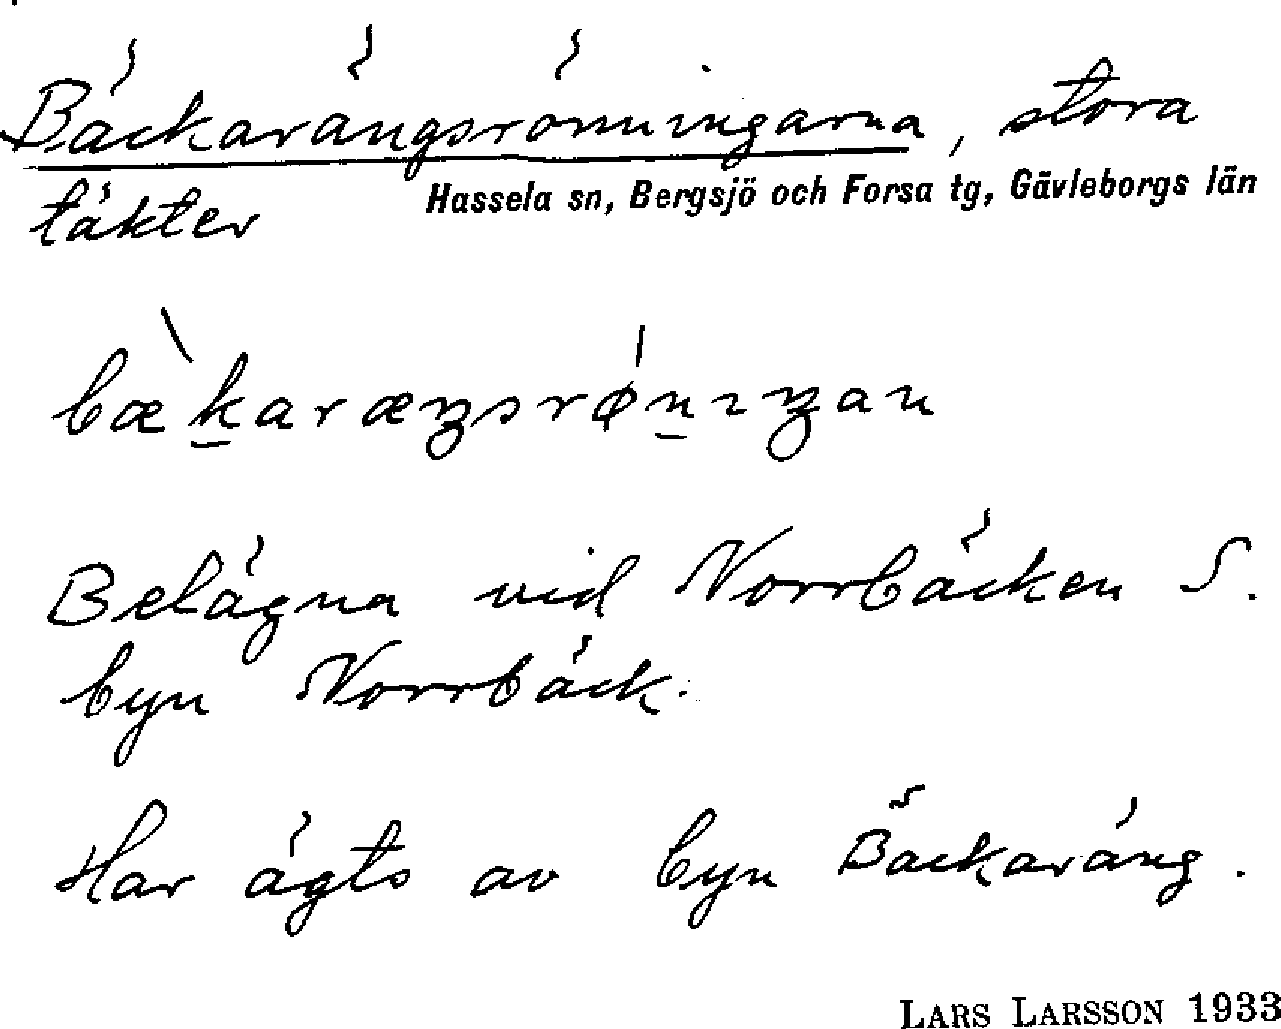 Bäckarängsrönningarna, stora
täkter
Hassela sn, Bergsjö och Forsa tg, Gävleborgs län
bæ̀k̲aræŋsrøń̲ıŋan
Belägna vid Norrbäcken S.
byn Norrbäck.
Har ägts av byn Bäckaräng.
LARS LARSSON 1933